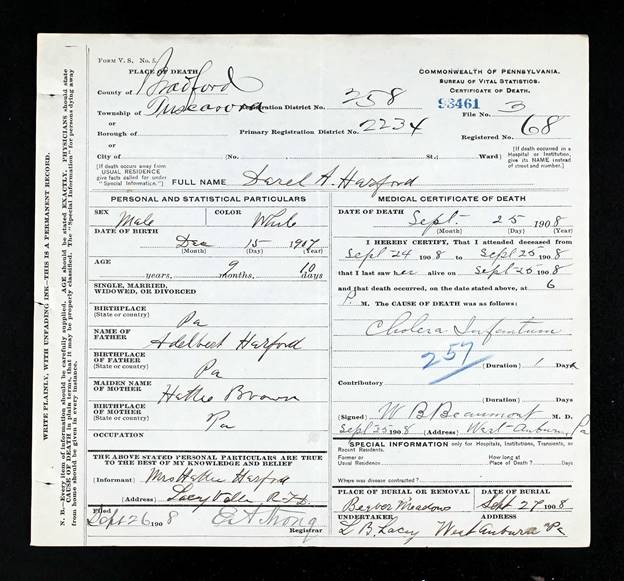 FORM V. S. No. 5.
PLACE OF DEATH
County of Bradford
Township of Tuscarora Registration District No. 258
or
Borough of Primary Registration District No. 2234
or
City of (No. St.; Ward)
COMMONWEALTH OF PENNSYLVANIA.
BUREAU OF VITAL STATISTICS.
CERTIFICATE OF DEATH.
93461 3
File No.
Registered No. 68
[If death occurred in a Hospital or Institution, give its NAME instead of street and number.]
[If death occurs away from USUAL RESIDENCE give facts called for under "Special Information."]
FULL NAME Darel A. Harford
PERSONAL AND STATISTICAL PARTICULARS
SEX Male
COLOR White
DATE OF BIRTH
Dec 15 1907
(Month) (Day) (Year)
AGE
years, 9 months, 10 days
SINGLE, MARRIED,
WIDOWED, OR DIVORCED
BIRTHPLACE
(State or country) Pa
NAME OF
FATHER Adelbert Harford
BIRTHPLACE
OF FATHER
(State or country) Pa
MAIDEN NAME
OF MOTHER Hattie Brown
BIRTHPLACE
OF MOTHER
(State or country) Pa
OCCUPATION
THE ABOVE STATED PERSONAL PARTICULARS ARE TRUE
TO THE BEST OF MY KNOWLEDGE AND BELIEF
(Informant) Mrs Hattie Harford
(Address) Laceyville R.F.D.
Filed
Sept 26 1908 Registrar
MEDICAL CERTIFICATE OF DEATH
DATE OF DEATH Sept. 25 1908
(Month) (Day) (Year)
I HEREBY CERTIFY, That I attended deceased from
Sept 24 1908 to Sept 25 1908
that I last saw her alive on Sept 25 1908
and that death occurred, on the date stated above, at 6
P. M. The CAUSE OF DEATH was as follows:
Cholera Infantum
257
(Duration) 1 Days
Contributory
(Duration) Days
(Signed) W B Beaumont M. D.
Sept 25 1908 (Address) West Auburn, Pa
SPECIAL INFORMATION only for Hospitals, Institutions, Transients, or
Recent Residents.
Former or
Usual Residence
How long at
Place of Death? Days
Where was disease contracted?
PLACE OF BURIAL OR REMOVAL
Beaver Meadows
DATE OF BURIAL
Sept 27 1908
UNDERTAKER
L B. Lacey West Auburn Pa
WRITE PLAINLY, WITH UNFADING INK—THIS IS A PERMANENT RECORD.
N. B.—Every item of information should be carefully supplied. AGE should be stated EXACTLY. PHYSICIANS should state
CAUSE OF DEATH in plain terms, that it may be properly classified. The "Special Information" for persons dying away
from home should be given in every instance.